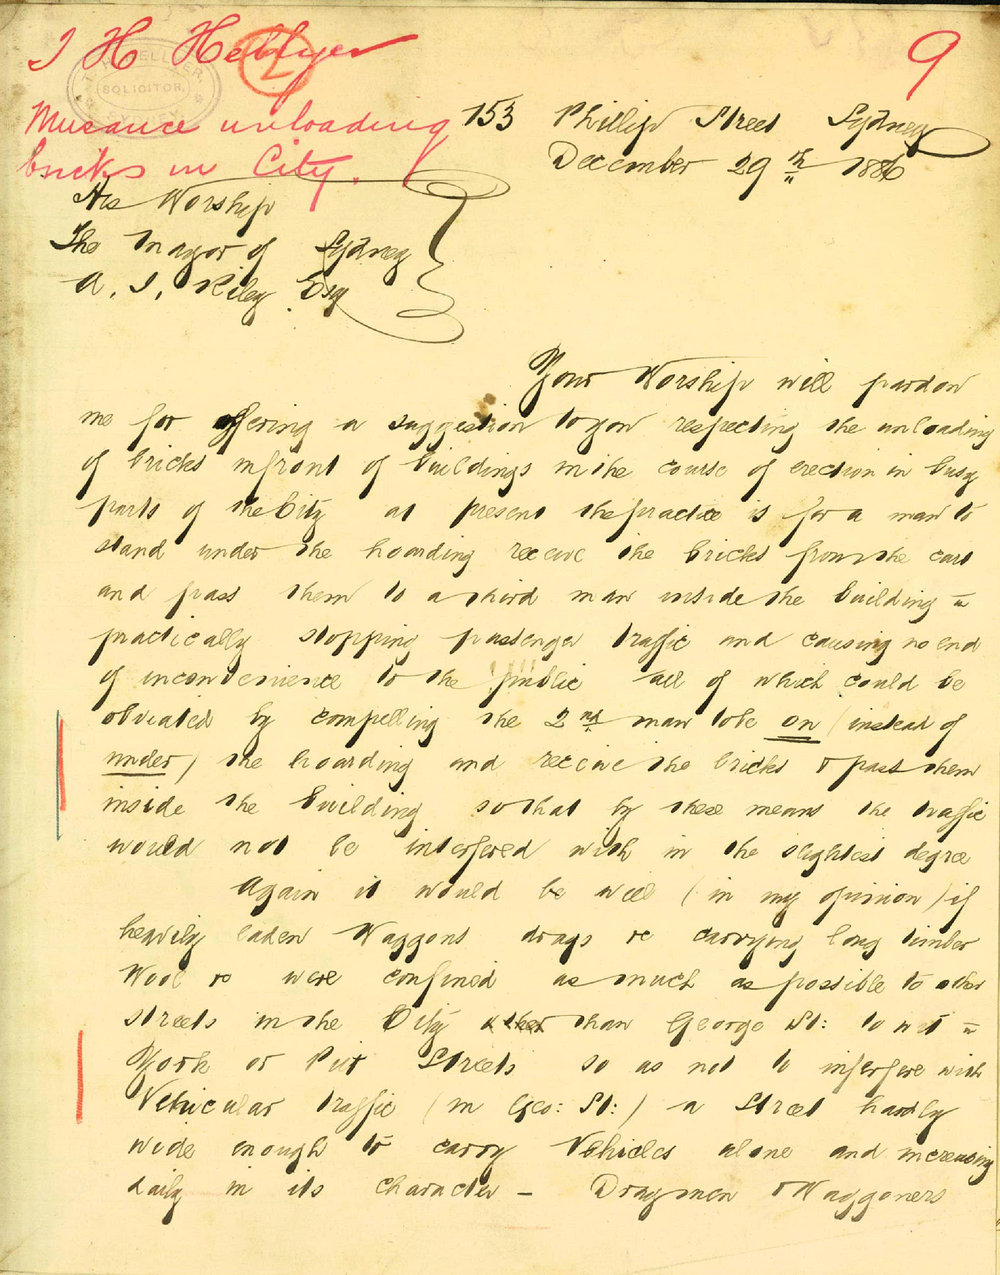 T H Hellyer
2
9
T. H. HELLYER,
SOLICITOR,
Nuisance unloading
bricks in City.
153 Phillip Street Sydney
December 29th 1886
His Worship
The Mayor of Sydney
A. J. Riley Esq
Your Worship will pardon
me for offering a suggestion to you respecting the unloading
of bricks infront of buildings in the course of erection in busy
parts of the City at present the practice is for a man to
stand under the hoarding receive the bricks from the cart
and pass them to a third man inside the building –
practically stopping passenger traffic and causing no end
of inconvenience to the public all of which could be
obviated by compelling the 2nd man to be on (instead of
under) the hoarding and receive the bricks & pass them
inside the building so that by these means the traffic
would not be interfered with in the slightest degree
Again it would be well (in my opinion) if
heavily laden Waggons drays &c carrying long timber
Wool &c were confined as much as possible to other
streets in the City other than George St: to wit –
York or Pitt Streets so as not to interfere with
Vehicular traffic (in Geo: St:) a Street hardly
wide enough to carry Vehicles alone and increasing
daily in its character – Draymen & Waggoners